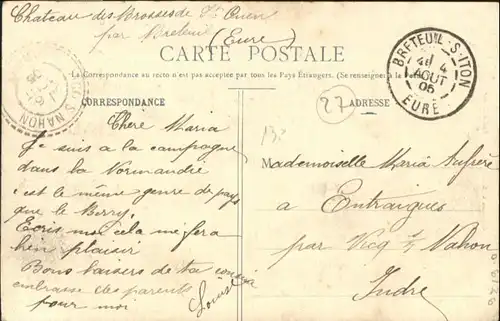 Chateau des Brosses de St Ouen
par Breteuil (Eure)
CARTE POSTALE
La Correspondance au recto n'est pas acceptée par tous les Pays Étrangers. (Se renseigner à la
BRETEUIL-S-ITON
4
AOUT
05
EURE
S NAHON
CORRESPONDANCE
27
ADRESSE
Chère Maria
Je suis a la campagne
dans la Normandie
c'est le même genre de pays
que le Berry.
Ecris moi cela me fera
bien plaisir
Bons baisers de ta cousine
embrasse tes parents
pour moi
Louise
Mademoiselle Maria Aufrère
a Entraigues
par Vicq s/ Nahon
Indre